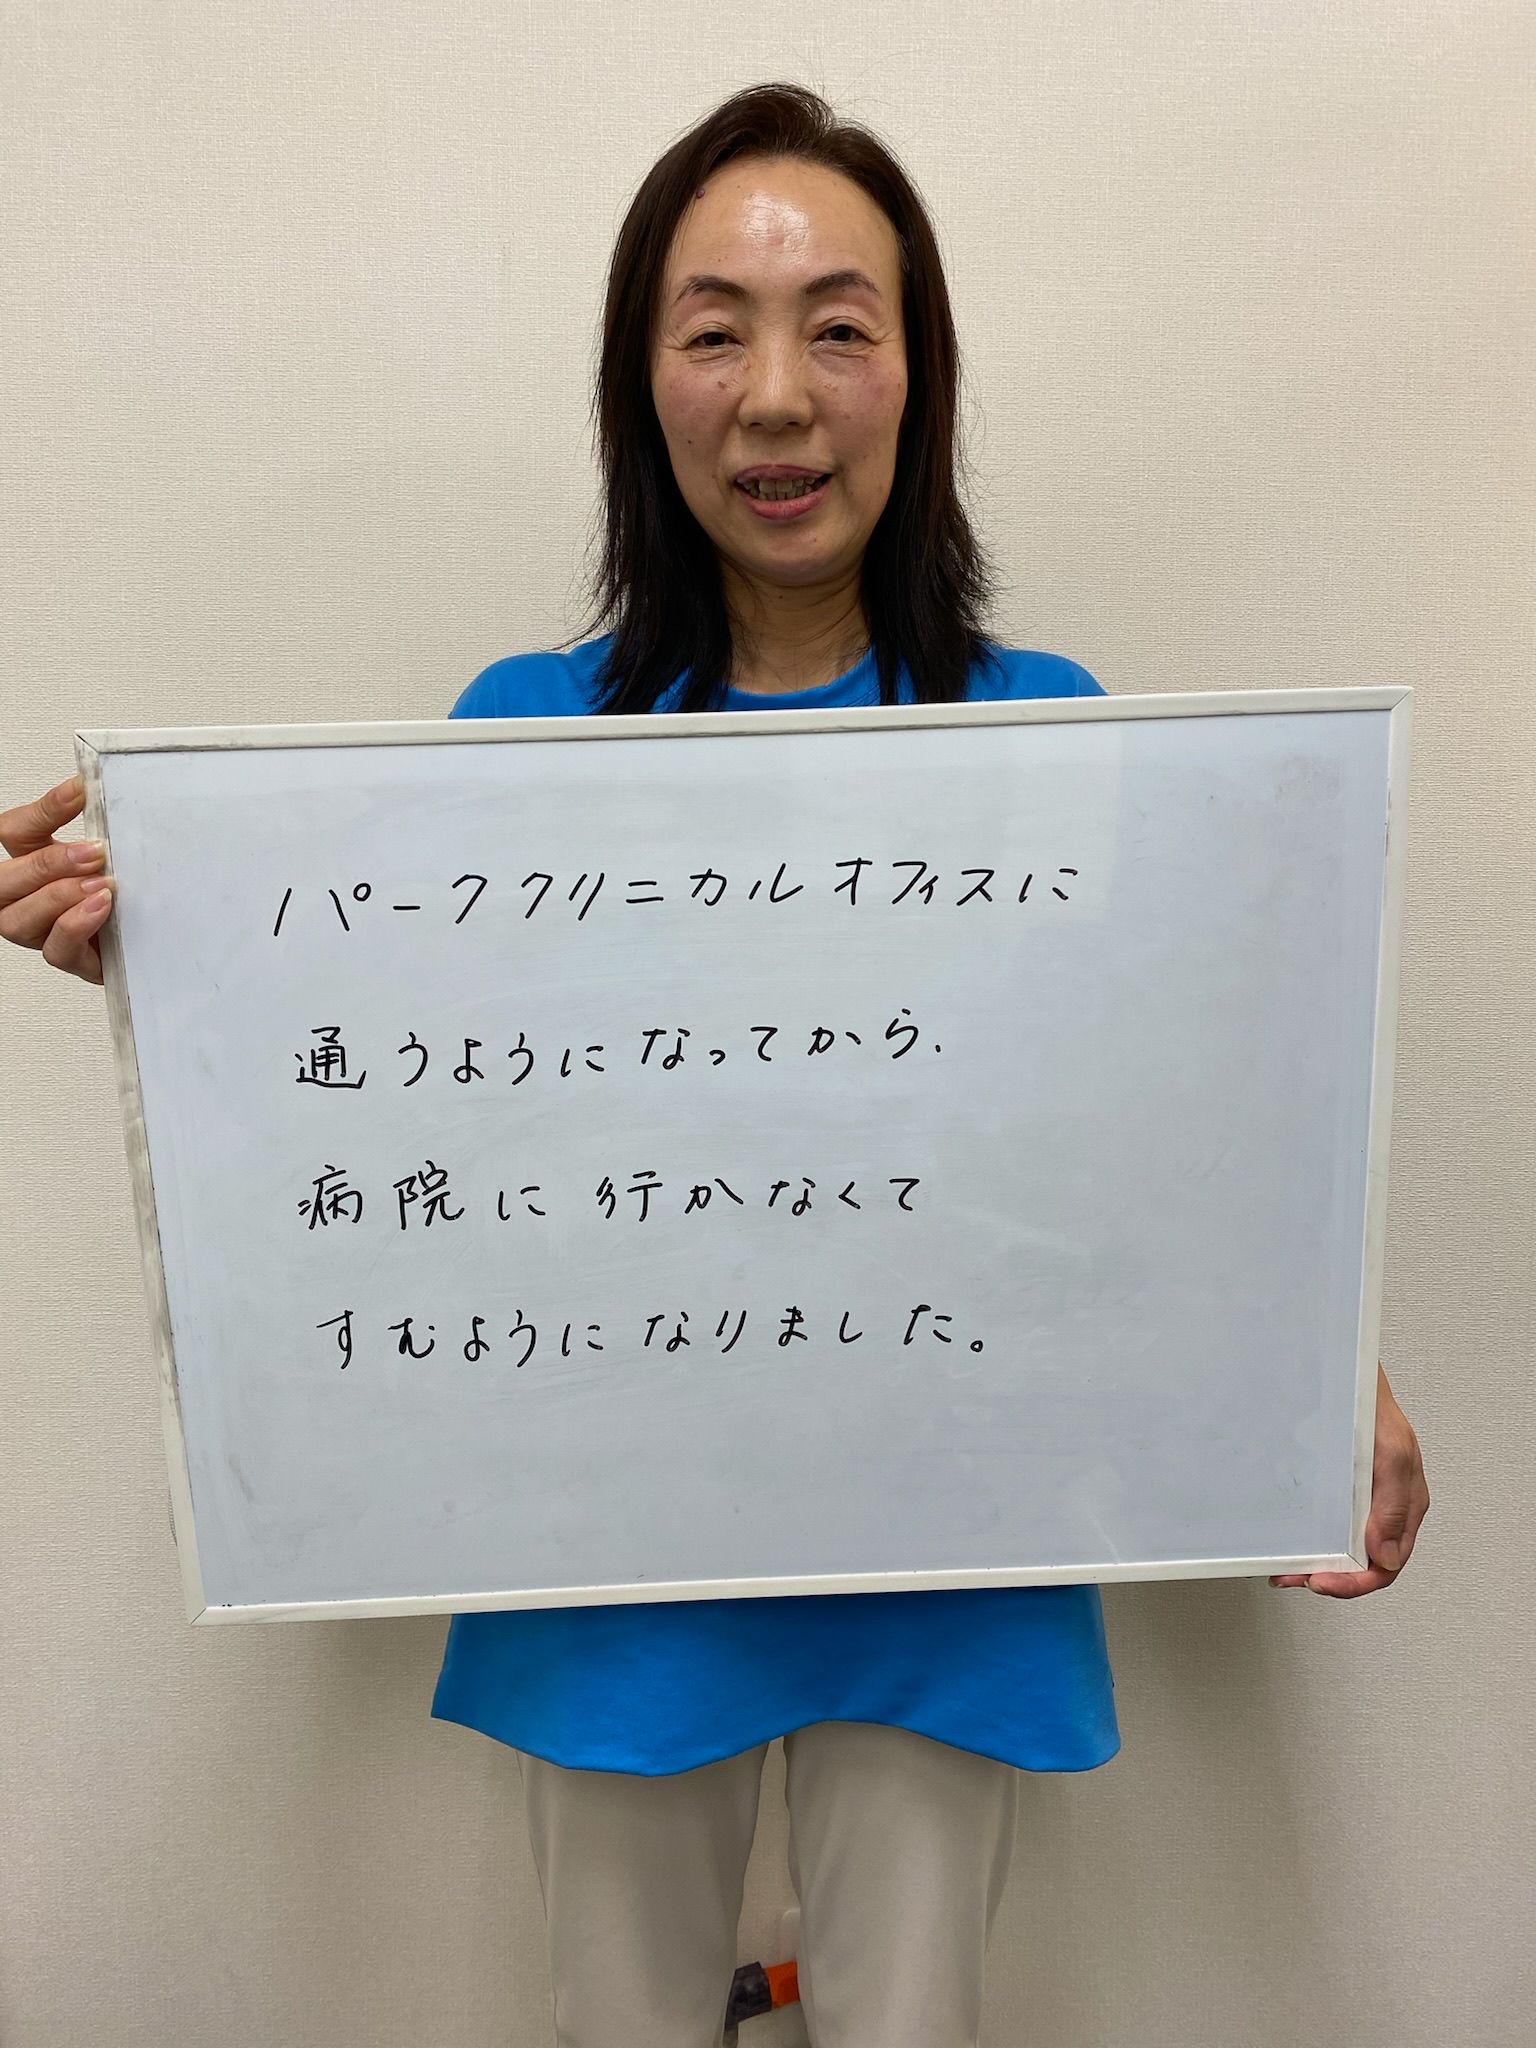 パーククリニカルオフィスに
通うようになってから、
病院に行かなくて
すむようになりました。